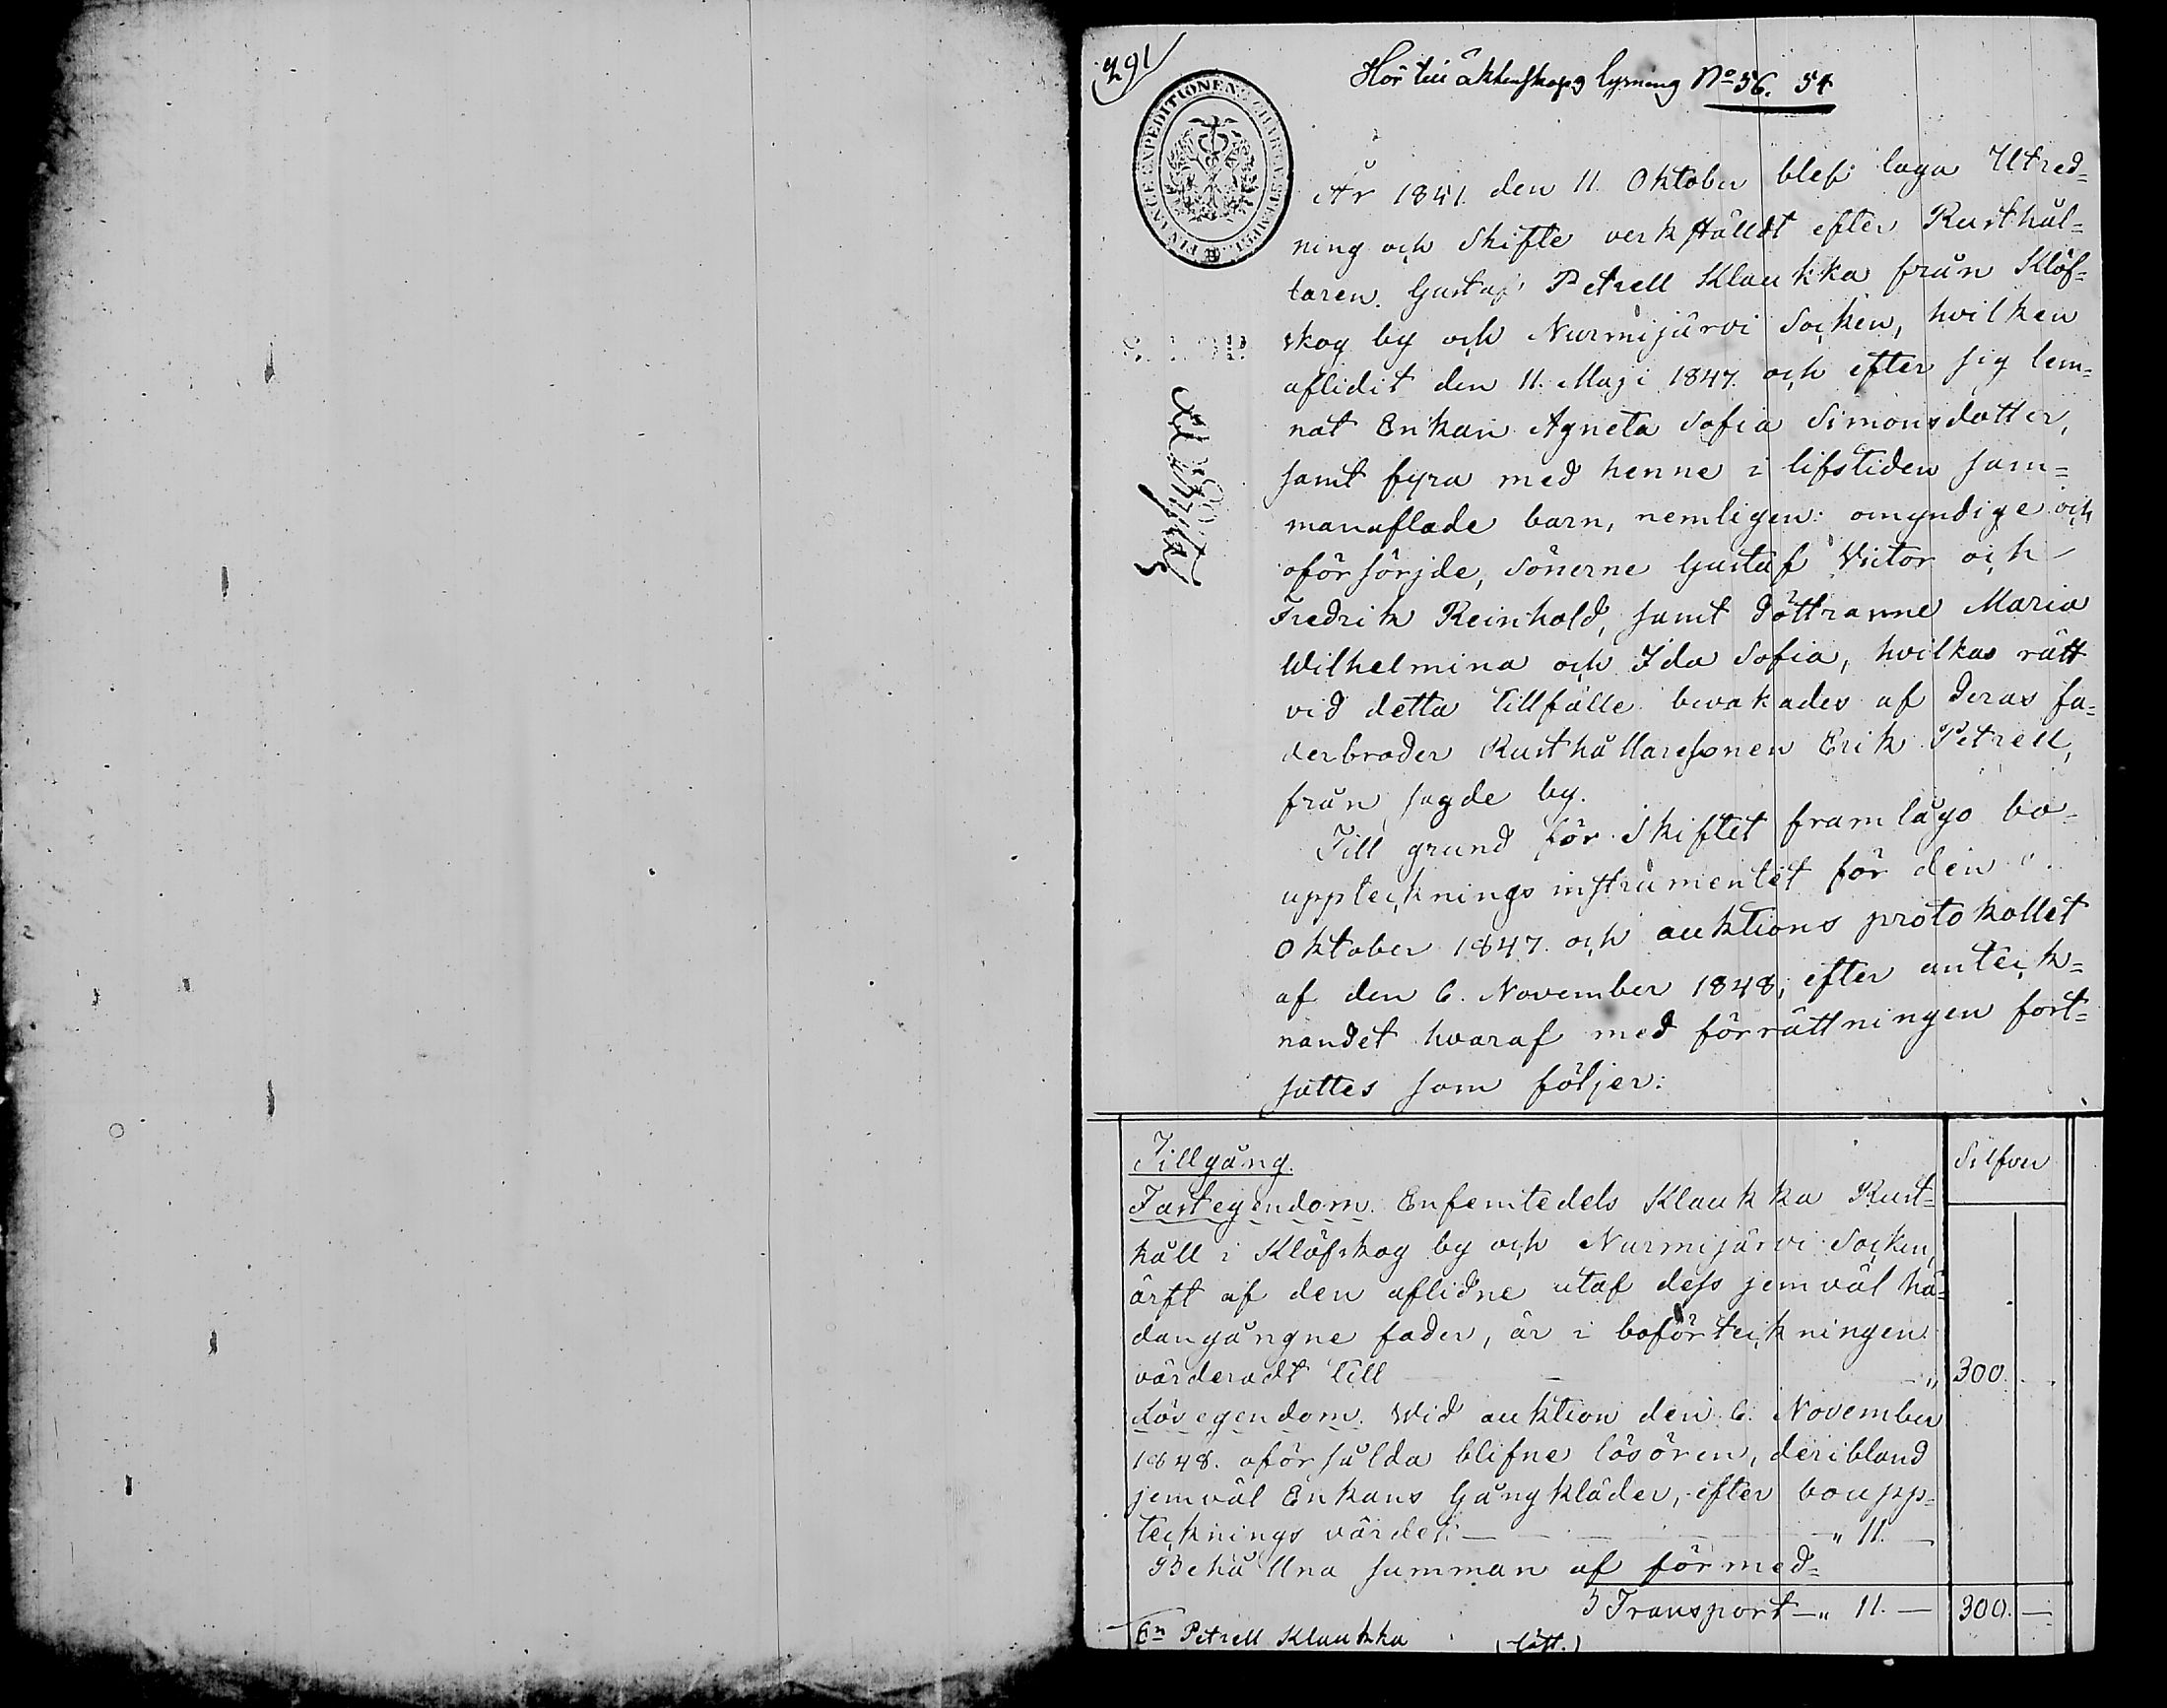 291
Hör till äktenskaps lysning No 56. 54
År 1851. den 11. Oktober blef laga Utred=
ning och Skifte verkställdt efter Rusthål=
laren Gustaf Petrell Klaukka från Klöf=
skog by och Nurmijärvi Socken, hvilken
aflidit den 11. Maji 1847. och efter sig lem=
nat Enkan Agneta Sofia Simonsdotter,
samt fyra med henne i lifstiden sam=
manaflade barn, nemligen: omyndige och
oförsörjde, sönerne Gustaf Victor och
Fredrik Reinhold, samt döttrarne Maria
Wilhelmina och Ida Sofia, hvilkas rätt
vid detta tillfälle bevakades af deras fa=
derbroder Rusthållaresonen Erik Petrell,
från sagde by.
Till grund för Skiftet framlågo bo-
uppteckningsinstrumentet för den
Oktober 1847. och auktions protokollet
af den 6. November 1848, efter anteck=
nandet hvaraf med förrättningen fort=
sattes som följer:
Tillgång.
Silfver
Fastegendom. Enfemtedels Klaukka Rust=
håll i Klöfskog by och Nurmijärvi Socken,
ärft af den aflidne utaf dess jemväl hä=
dangångne fader, är i boförteckningen
värderadt till — " 300. —
Lösegendom. Wid auktion den 6. November
1848. oförsålda blifne lösören, deribland
jemväl Enkans Gångkläder, efter boupp=
tecknings värdet: — " 11. —
Behållna summan af förmed=
Transport — " 11. — 300. —
En Petrell Klaukka